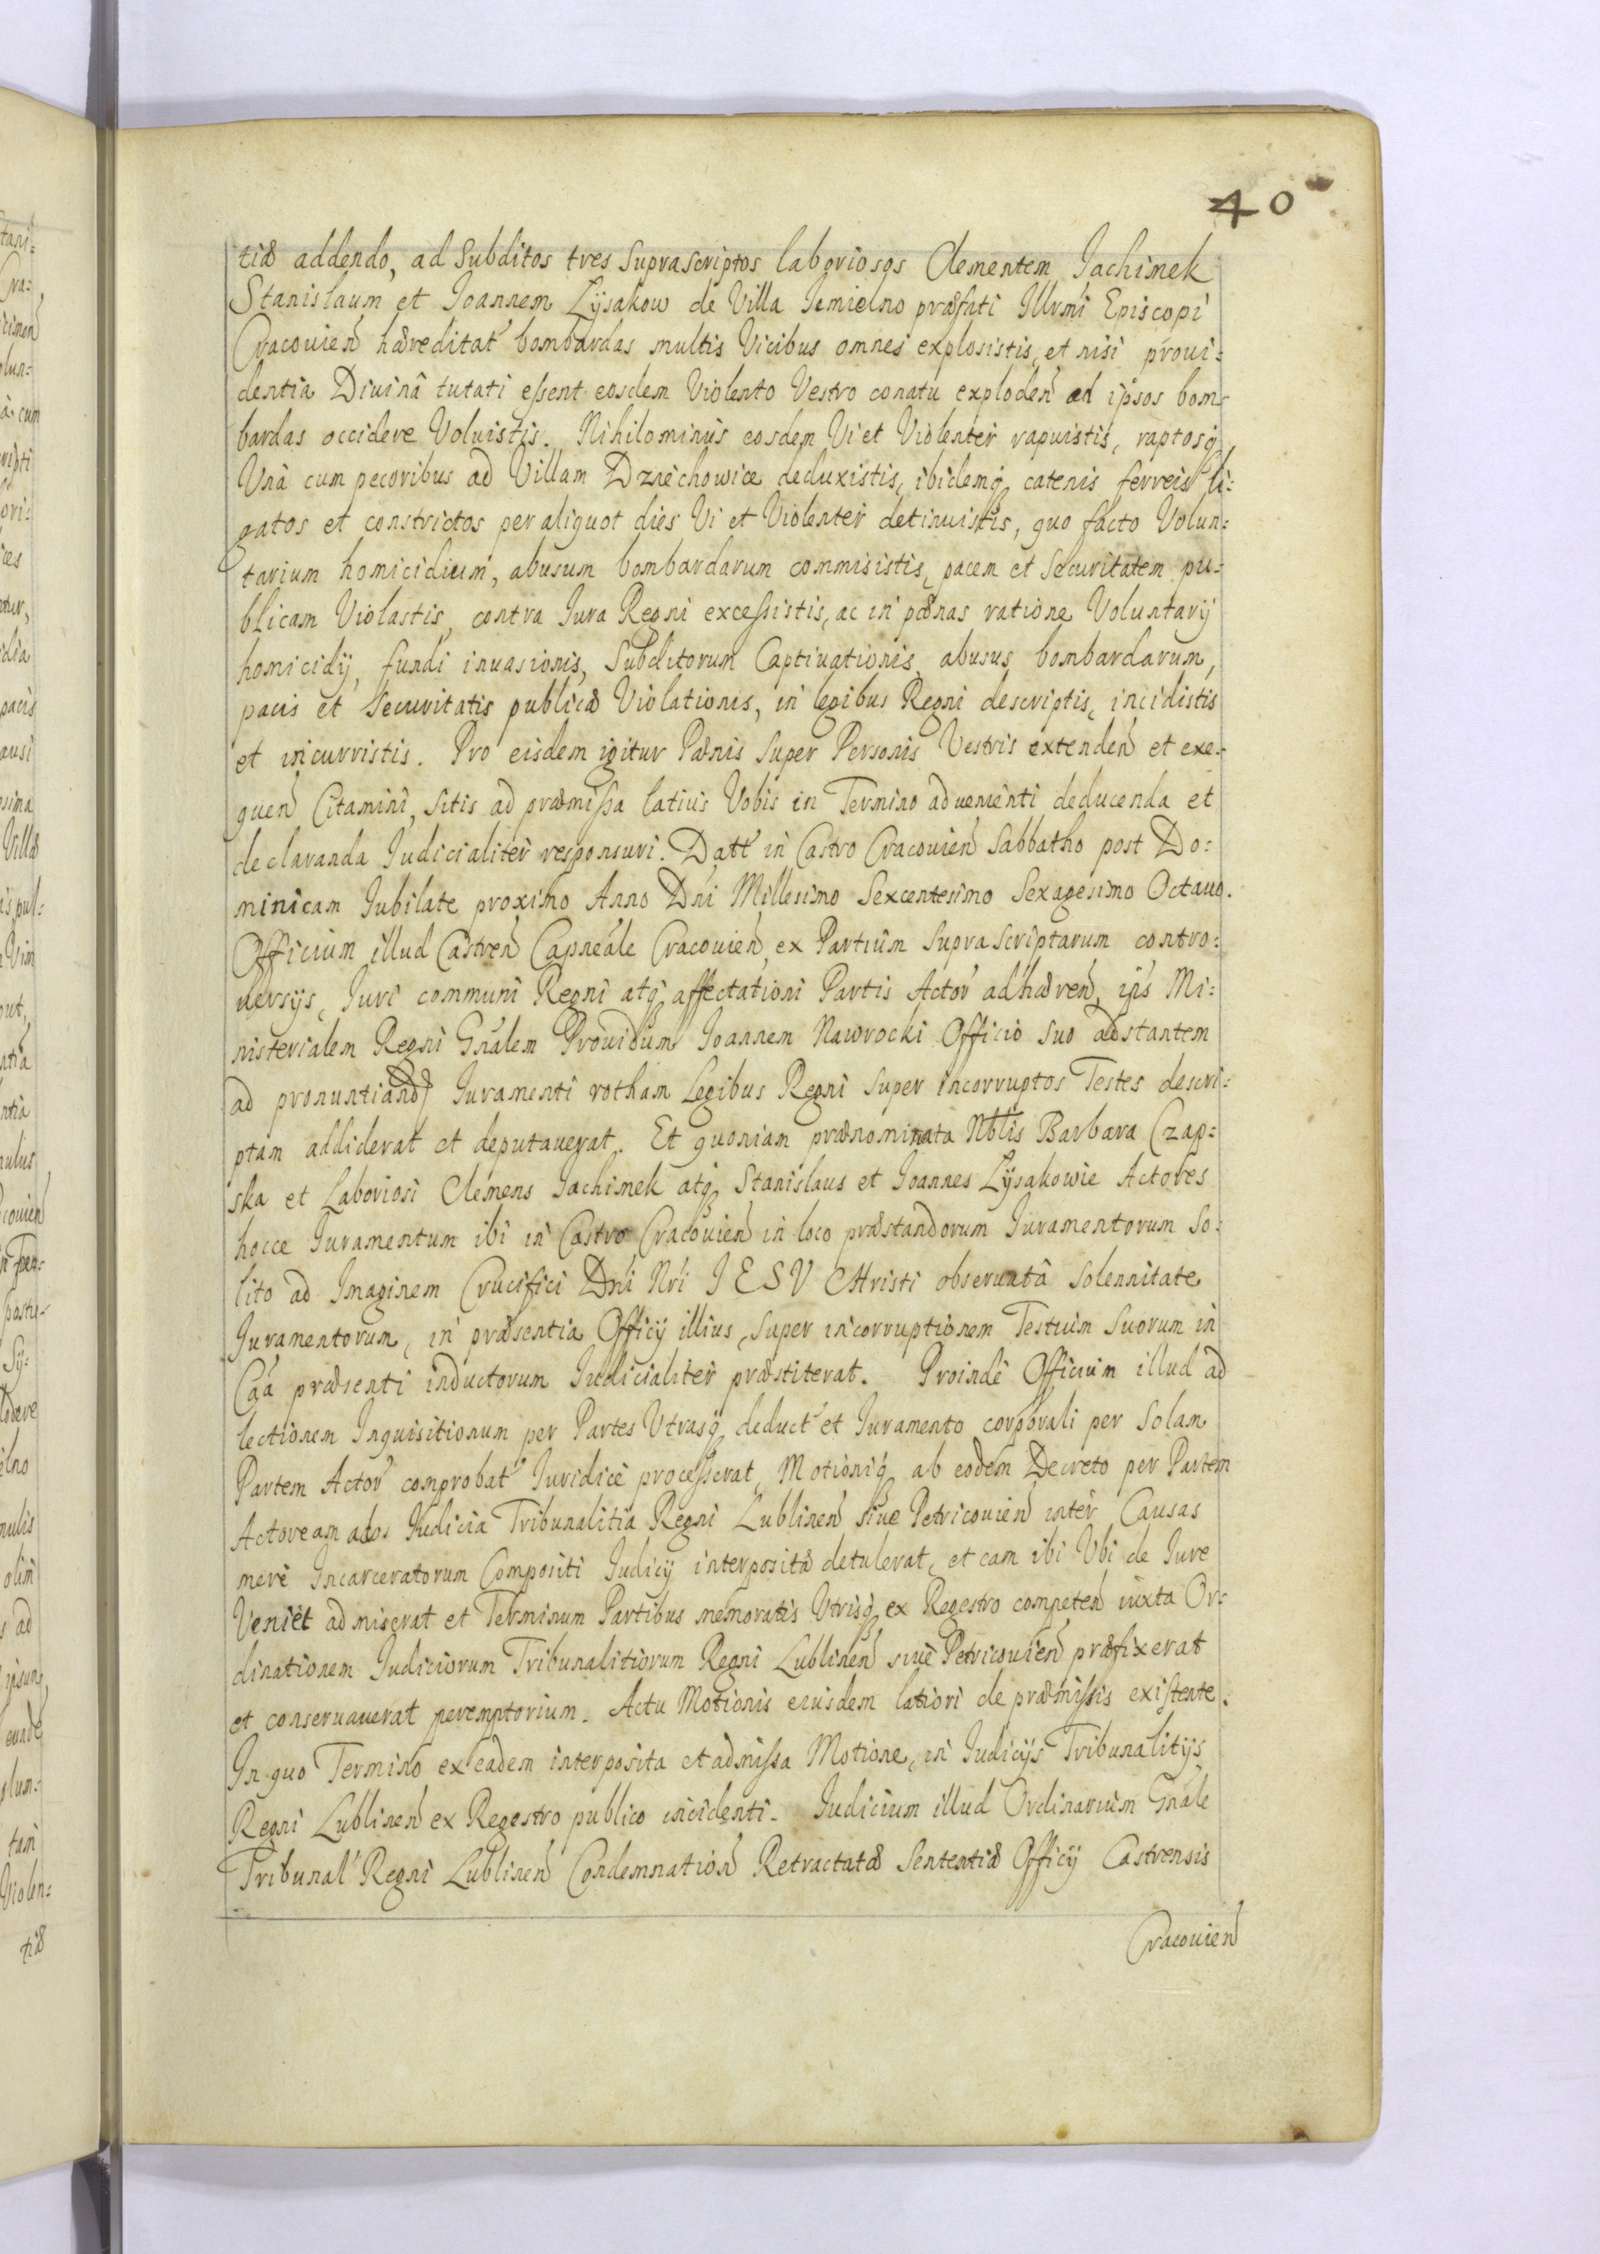 40
tiæ addendo, ad Subditos tres Suprascriptos laboriosos Clementem Jachimek
Stanislaum et Joannem Łÿsakow de Villa Jemielno præfati Illrmi Episcopi
Cracouien hæreditat bombardas multis Vicibus omnes explosistis, et nisi proui:
dentia Diuinâ tutati essent eosdem Violento Vestro conatu exploden ad ipsos bom:
bardas occidere Voluistis. Nihilominus eosdem Vi et Violenter rapuistis, raptosq
Vnà cum pecoribus ad Villam Dziechowice deduxistis, ibidemq catenis ferreis li:
gatos et constrictos per aliquot dies Vi et Violenter detinuistis, quo facto Volun:
tarium homicidium, abusum bombardarum commisistis, pacem et Securitatem pu:
blicam Violastis, contra Jura Regni excessistis, ac in pænas ratione Voluntarÿ
homicidÿ, fundi inuasionis, Subditorum Captiuationis, abusus bombardarum,
pacis et Securitatis publicæ Violationis, in legibus Regni descriptis, incidistis
et incurristis. Pro eisdem igitur Pænis Super Personis Vestris extenden et exe:
quen Citamini, Sitis ad præmissa latius Vobis in Termino aduenienti deducenda et
declaranda Judicialiter responsuri. Datt in Castro Cracouien Sabbatho post Do:
minicam Jubilate proximo Anno Dni Millesimo Sexcentesimo Sexagesimo Octauo.
Officium illud Castren Capneale Cracouien, ex Partium Suprascriptarum contro:
uersÿs, Juri communi Regni atq affectationi Partis Actor adhæren, ijs Mi:
nisterialem Regni Gnalem Prouidum Joannem Nawrocki Officio Suo adstantem
ad pronuntiand Juramenti rotham Legibus Regni Super incorruptos Testes descri:
ptam addiderat et deputauerat. Et quoniam prænominata Nblis Barbara Czap:
ska et Laboriosi Clemens Jachimek atq Stanislaus et Joannes Łÿsakowie Actores
hocce Juramentum ibi in Castro Cracouien in loco præstandorum Juramentorum So:
lito ad Imaginem Crucifici Dni Nri JESV CHristi obseruatâ Solennitate
Juramentorum, in præsentia Officÿ illius, Super incorruptionem Testium Suorum in
Caâ præsenti inductorum Judicialiter præstiterat. Proindè Officium illud ad
lectionem Inquisitionum per Partes Vtrasq deduct et Juramento corporali per Solam
Partem Actor comprobat Juridicè processerat, Motioniq ab eodem Decreto per Partem
Actoream ad Judicia Tribunalitia Regni Lublinen siue Petricouien inter Causas
merè Incarceratorum Compositi Judicÿ interposità detulerat, et eam ibi Vbi de Jure
Veniet admiserat et Terminum Partibus memoratis Vtrisq ex Regestro competen iuxta Or:
dinationem Judiciorum Tribunalitiorum Regni Lublinen siuè Petricouien præfixerat
et conseruauerat peremptorium. Actu Motionis eiusdem latiori de præmissis existente.
In quo Termino ex eadem interposita et admissa Motione, in Judicÿs Tribunalitÿs
Regni Lublinen ex Regestro publico incidenti. Judicium illud Ordinarium Gnale
Tribunal Regni Lublinen Condemnation Retractatæ Sententiæ Officÿ Castrensis
Cracouien